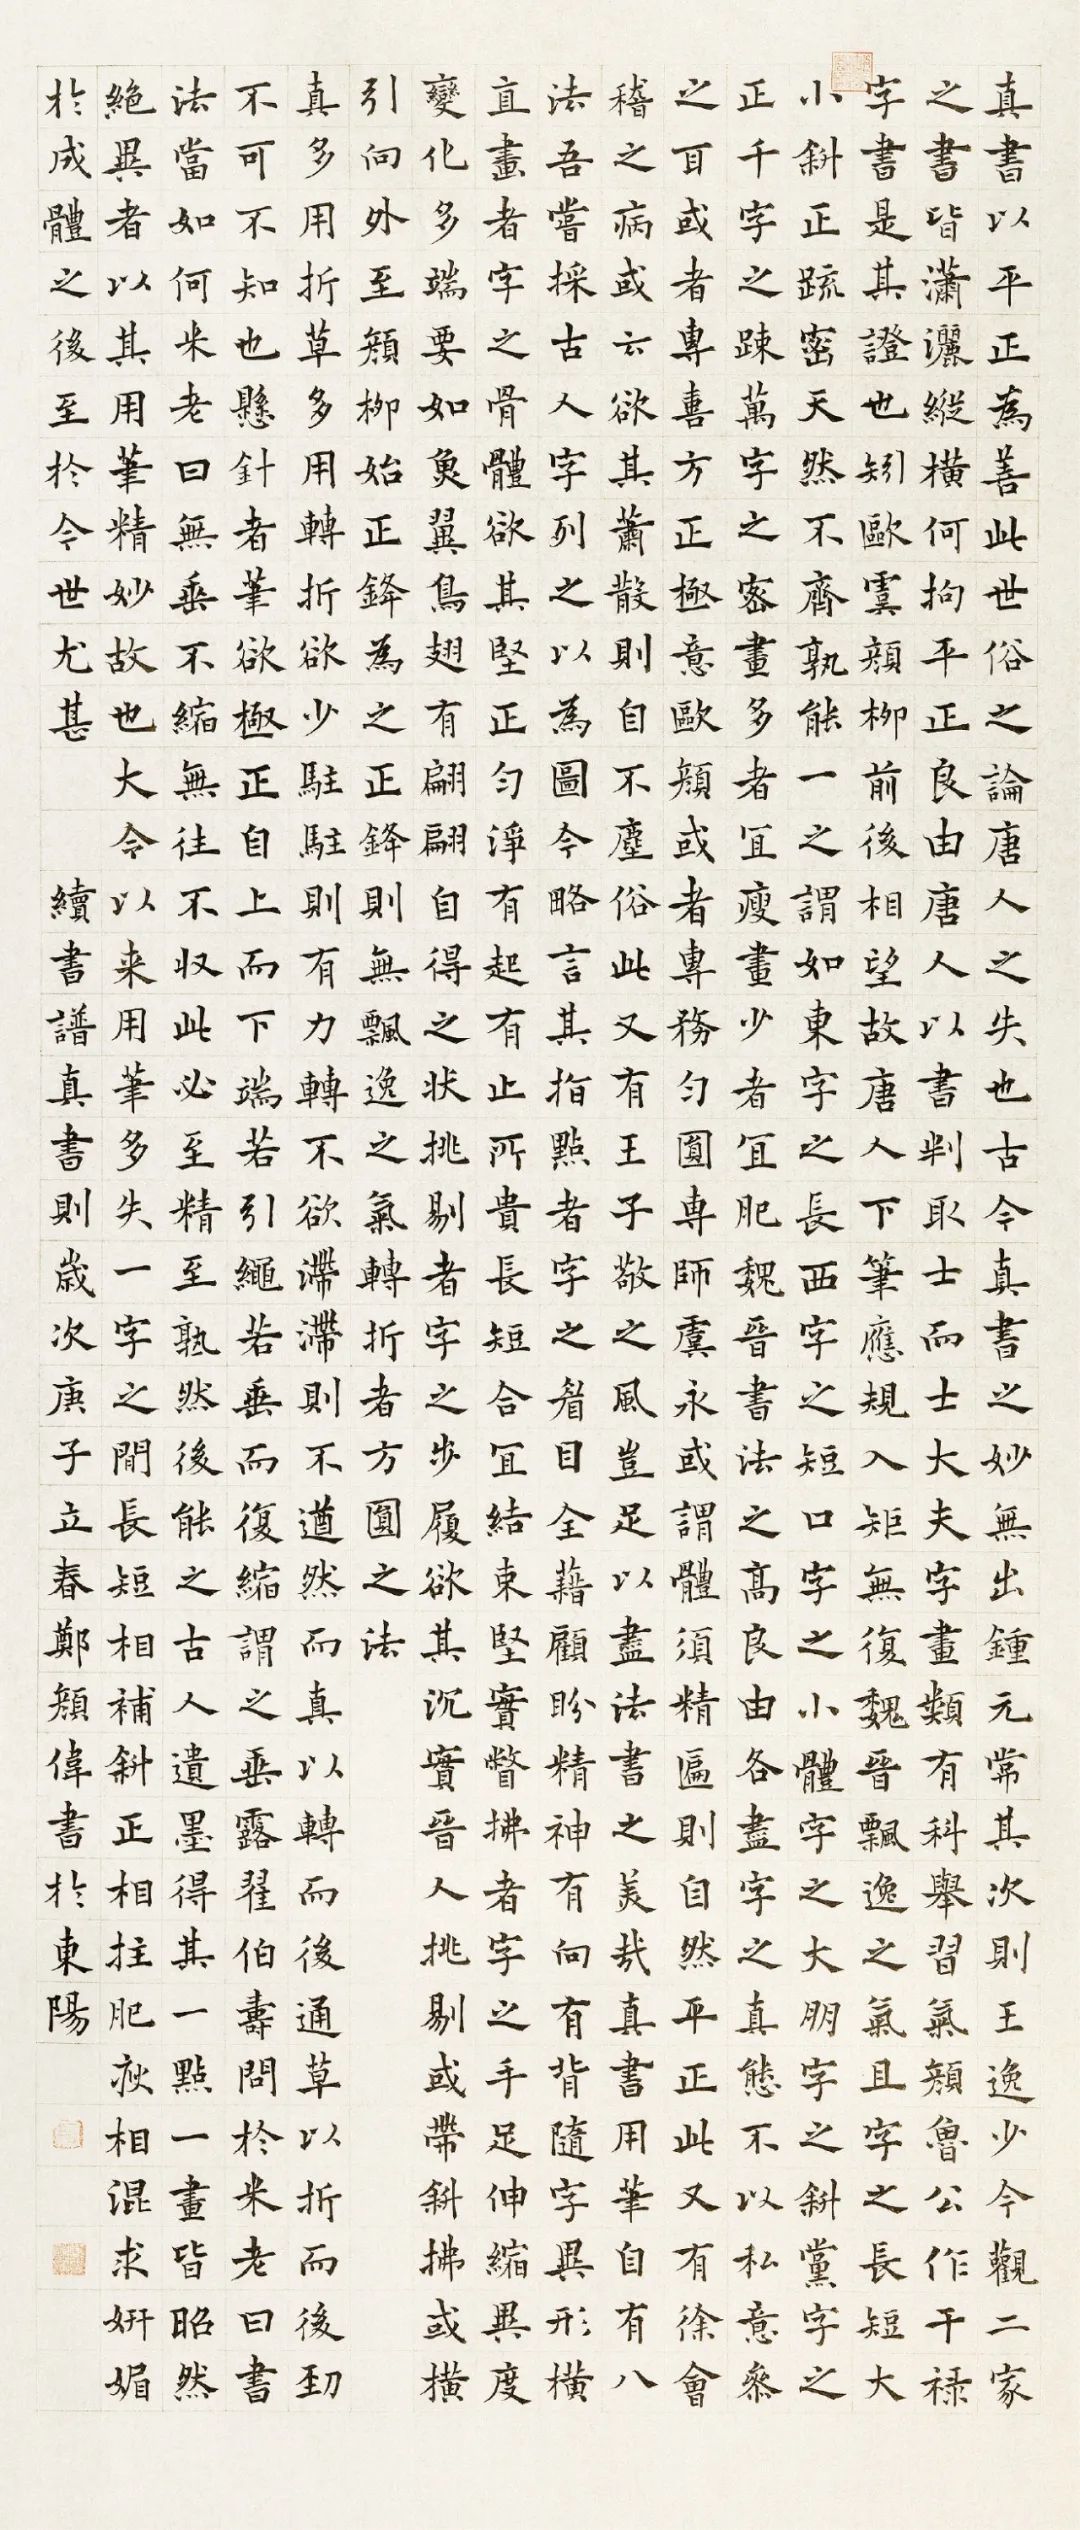 真書以平正為善此世俗之論唐人之失也古今真書之妙無出鍾元常其次則王逸少今觀二家
之書皆瀟灑縱橫何拘平正良由唐人以書判取士而士大夫字畫類有科舉習氣顏魯公作干祿
字書是其證也矧歐虞顏柳前後相望故唐人下筆應規入矩無復魏晉飄逸之氣且字之長短大
小斜正疏密天然不齊孰能一之謂如東字之長西字之短口字之小體字之大朋字之斜黨字之
正千字之疎萬字之密畫多者宜瘦畫少者宜肥魏晉書法之高良由各盡字之真態不以私意參
之耳或者專喜方正極意歐顏或者專務勻圓專師虞永或謂體須精匾則自然平正此又有徐會
稽之病或云欲其蕭散則自不塵俗此又有王子敬之風豈足以盡法書之美哉真書用筆自有八
法吾嘗採古人字列之以為圖今略言其指點者字之眉目全藉顧盼精神有向有背隨字異形橫
直畫者字之骨體欲其堅正勻淨有起有止所貴長短合宜結束堅實瞥拂者字之手足伸縮異度
變化多端要如魚翼鳥翅有翩翩自得之狀挑剔者字之步履欲其沉實晉人挑剔或帶斜拂或橫
引向外至顏柳始正鋒為之正鋒則無飄逸之氣轉折者方圓之法
真多用折草多用轉折欲少駐駐則有力轉不欲滯滯則不遒然而真以轉而後通草以折而後勁
不可不知也懸針者筆欲極正自上而下端若引繩若垂而復縮謂之垂露翟伯壽問於米老曰書
法當如何米老曰無垂不縮無往不收此必至精至熟然後能之古人遺墨得其一點一畫皆昭然
絕異者以其用筆精妙故也大令以来用筆多失一字之間長短相補斜正相拄肥疢相混求妍媚
於成體之後至於今世尤甚
續書譜真書則歲次庚子立春鄭頰偉書於東陽